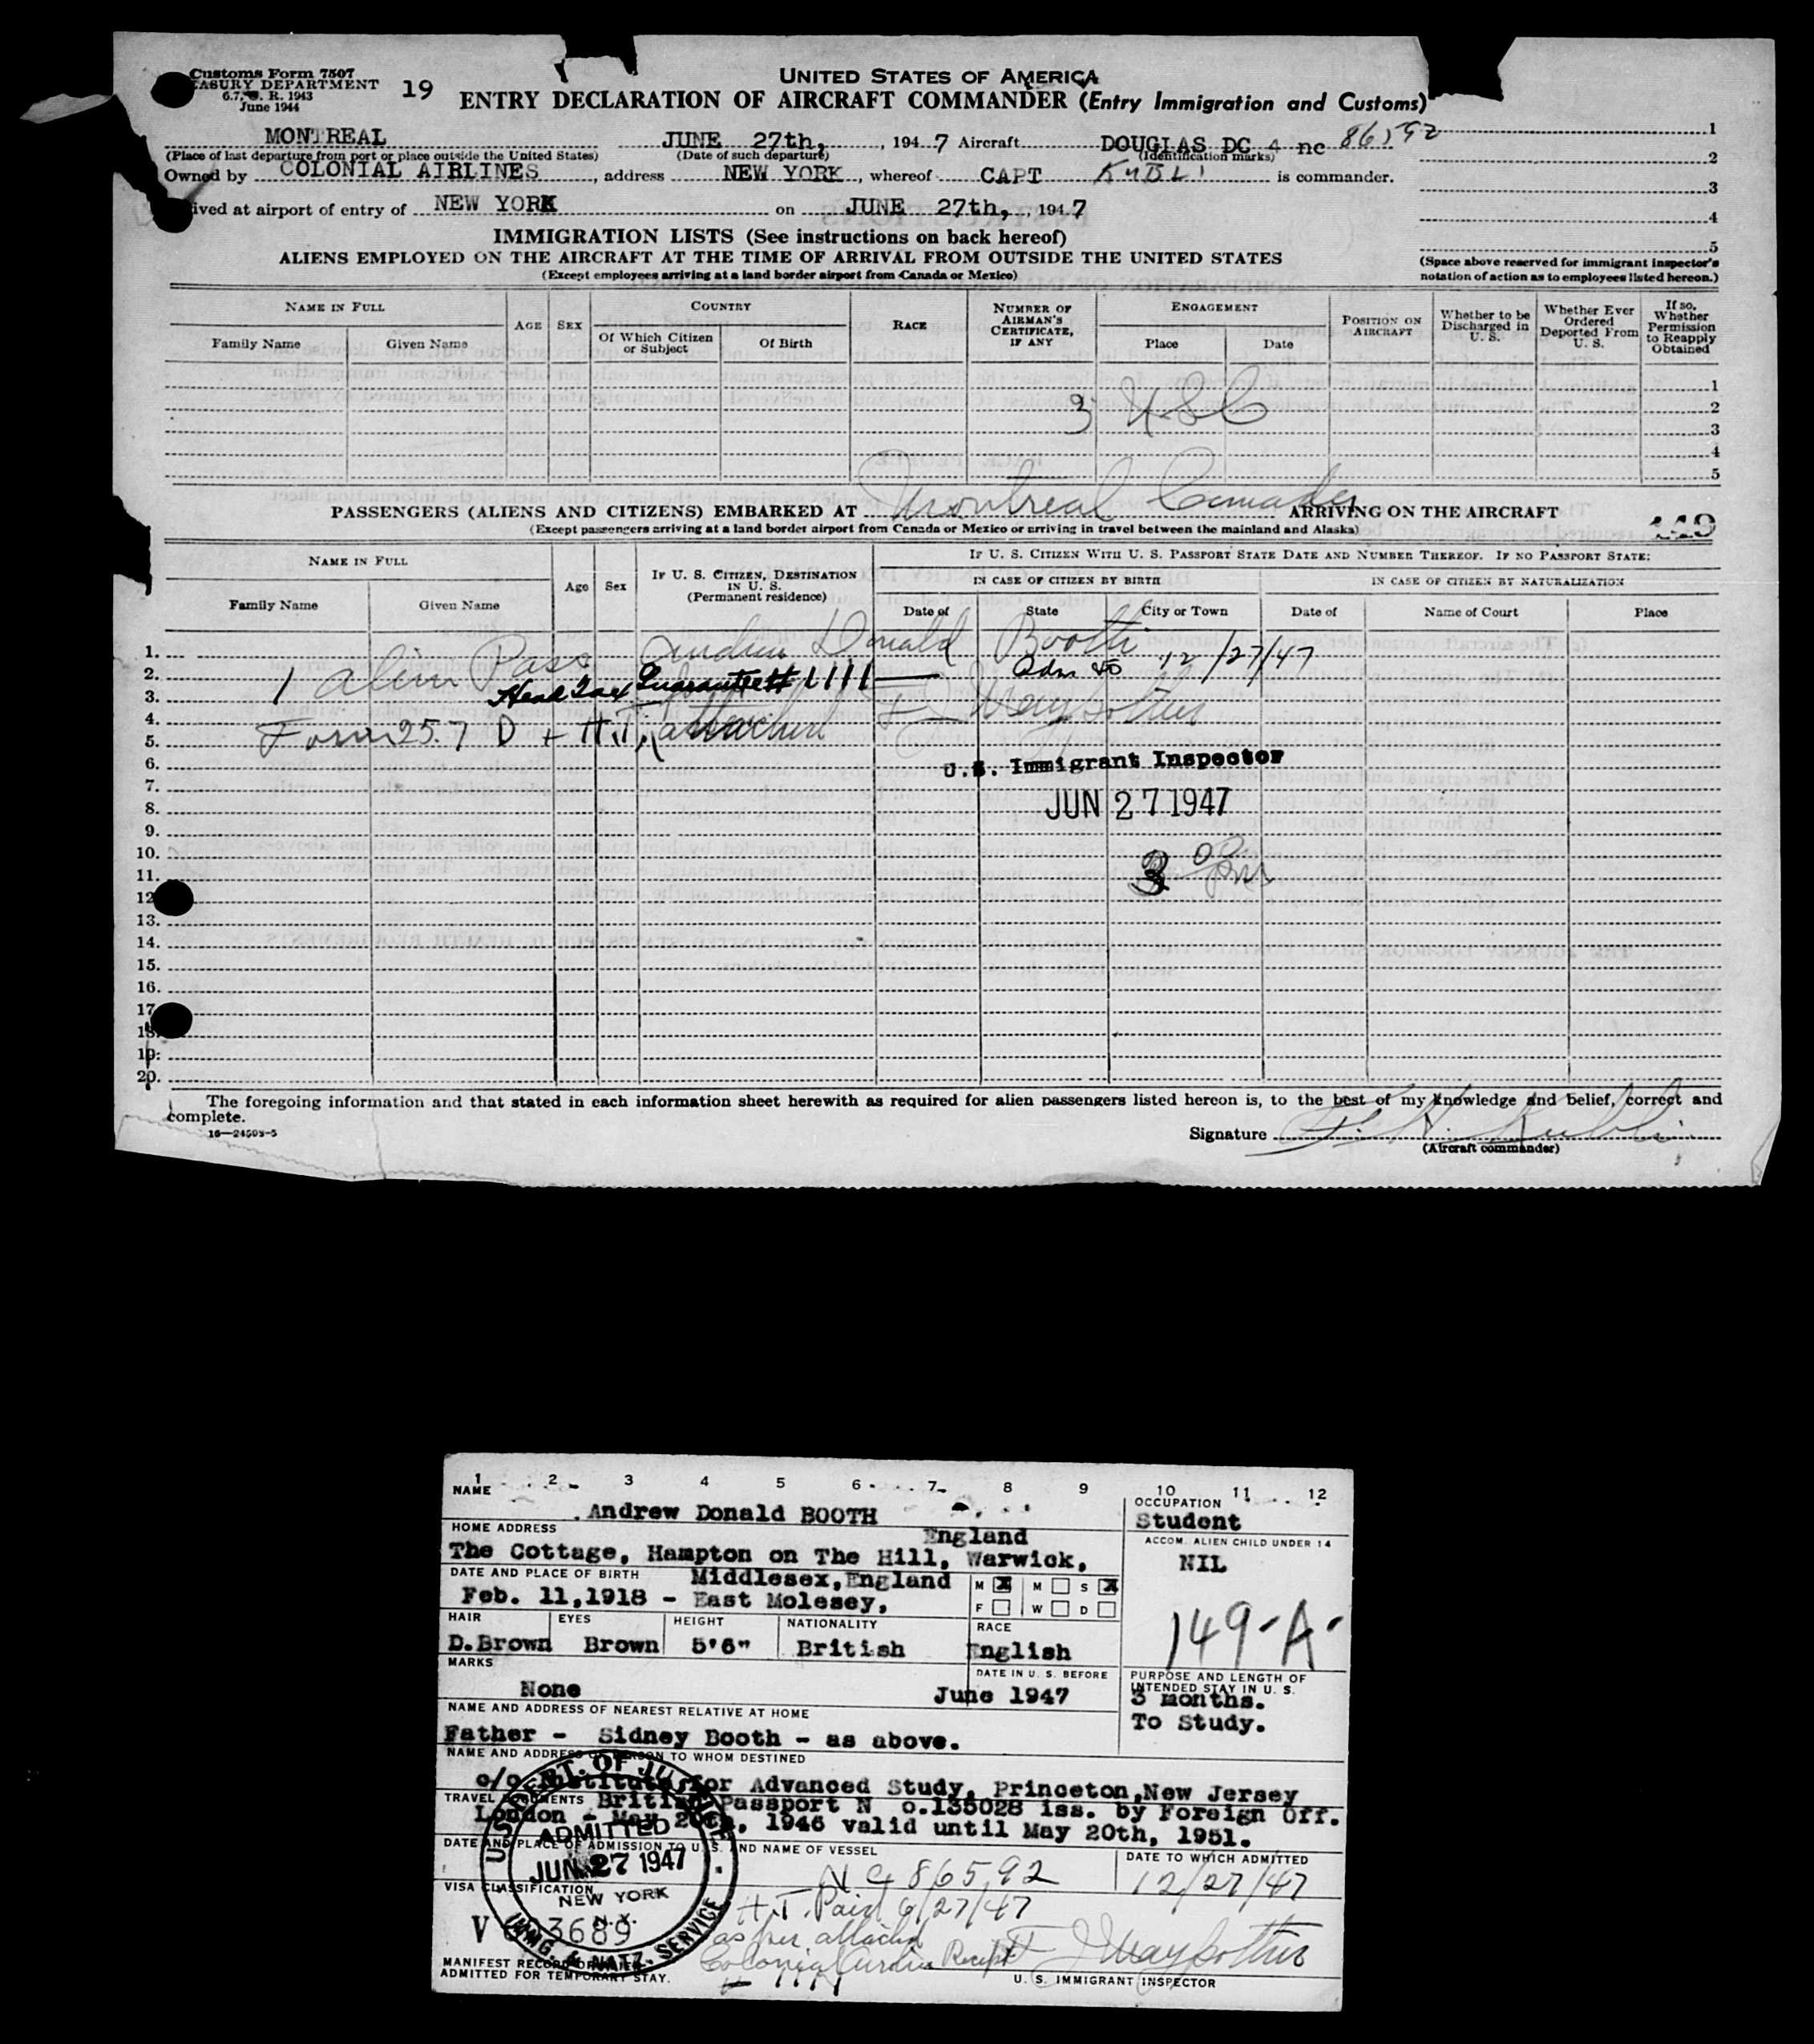 Customs Form 7507
TREASURY DEPARTMENT
June 1944
19
UNITED STATES OF AMERICA
ENTRY DECLARATION OF AIRCRAFT COMMANDER (Entry Immigration and Customs)
MONTREAL JUNE 27th, , 1947 Aircraft DOUGLAS DC 4 nc 86592
(Place of last departure from port or place outside the United States) (Date of such departure) (Identification marks)
Owned by COLONIAL AIRLINES , address NEW YORK , whereof CAPT KUBLI is commander.
Arrived at airport of entry of NEW YORK on JUNE 27th, , 1947
1
2
3
4
5
(Space above reserved for immigrant inspector's
notation of action as to employees listed hereon.)
IMMIGRATION LISTS (See instructions on back hereof)
ALIENS EMPLOYED ON THE AIRCRAFT AT THE TIME OF ARRIVAL FROM OUTSIDE THE UNITED STATES
(Except employees arriving at a land border airport from Canada or Mexico)
NAME IN FULL
Family Name Given Name
AGE SEX
COUNTRY
Of Which Citizen or Subject Of Birth
RACE
NUMBER OF AIRMAN'S CERTIFICATE, IF ANY
ENGAGEMENT
Place Date
POSITION ON AIRCRAFT
Whether to be Discharged in U. S.
Whether Ever Ordered Deported From U. S.
If so, Whether Permission to Reapply Obtained
1
2
3
4
5
3 USC
PASSENGERS (ALIENS AND CITIZENS) EMBARKED AT Montreal Canada ARRIVING ON THE AIRCRAFT
(Except passengers arriving at a land border airport from Canada or Mexico or arriving in travel between the mainland and Alaska)
149
NAME IN FULL
Family Name Given Name
Age Sex
IF U. S. CITIZEN, DESTINATION IN U. S. (Permanent residence)
IF U. S. CITIZEN WITH U. S. PASSPORT STATE DATE AND NUMBER THEREOF. IF NO PASSPORT STATE:
IN CASE OF CITIZEN BY BIRTH IN CASE OF CITIZEN BY NATURALIZATION
Date of State City or Town Date of Name of Court Place
1.
2.
3.
4.
5.
6.
7.
8.
9.
10.
11.
12
13.
14.
15.
16.
17
18.
19.
20.
1 Alien Pass Andrew Donald Booth
Adm to 12/27/47
Head Tax Guarantee # 1111
Form 257 D + H.T. attached
U.S. Immigrant Inspector
JUN 27 1947
3 00 pm
The foregoing information and that stated in each information sheet herewith as required for alien passengers listed hereon is, to the best of my knowledge and belief, correct and
complete.
16—24598-5
Signature F. H. Kubli
(Aircraft commander)
1 2 3 4 5 6 7 8 9 10 11 12
NAME
Andrew Donald BOOTH
OCCUPATION
Student
HOME ADDRESS
England
The Cottage, Hampton on The Hill, Warwick,
ACCOM. ALIEN CHILD UNDER 14
NIL
DATE AND PLACE OF BIRTH
Middlesex, England
Feb. 11,1918 - East Molesey,
M X M S X
F W D
149-A-
HAIR EYES HEIGHT NATIONALITY RACE
D.Brown Brown 5'6" British English
MARKS
None
DATE IN U. S. BEFORE
June 1947
PURPOSE AND LENGTH OF
INTENDED STAY IN U. S.
3 months.
To Study.
NAME AND ADDRESS OF NEAREST RELATIVE AT HOME
Father - Sidney Booth - as above.
NAME AND ADDRESS OF PERSON TO WHOM DESTINED
c/o Institute for Advanced Study, Princeton,New Jersey
TRAVEL DOCUMENTS
British Passport N o.135028 iss. by Foreign Off.
London - May 20th, 1946 valid until May 20th, 1951.
DATE AND PLACE OF ADMISSION TO U. S. AND NAME OF VESSEL
NC 86592
DATE TO WHICH ADMITTED
12/27/47
U.S. DEPT. OF JUSTICE
ADMITTED
JUN 27 1947
NEW YORK
N.Y.
IMMG. & NATZ. SERVICE
VISA CLASSIFICATION
H.T. Paid 6/27/47
as per attached
Colonial Airlines Receipt
# 1111
MANIFEST RECORD OF ALIEN
ADMITTED FOR TEMPORARY STAY.
U. S. IMMIGRANT INSPECTOR